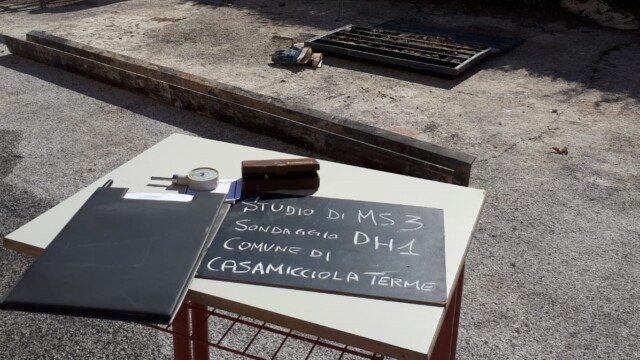 STUDIO DI MS3
SONDAGGIO DH1
COMUNE DI
CASAMICCIOLA TERME